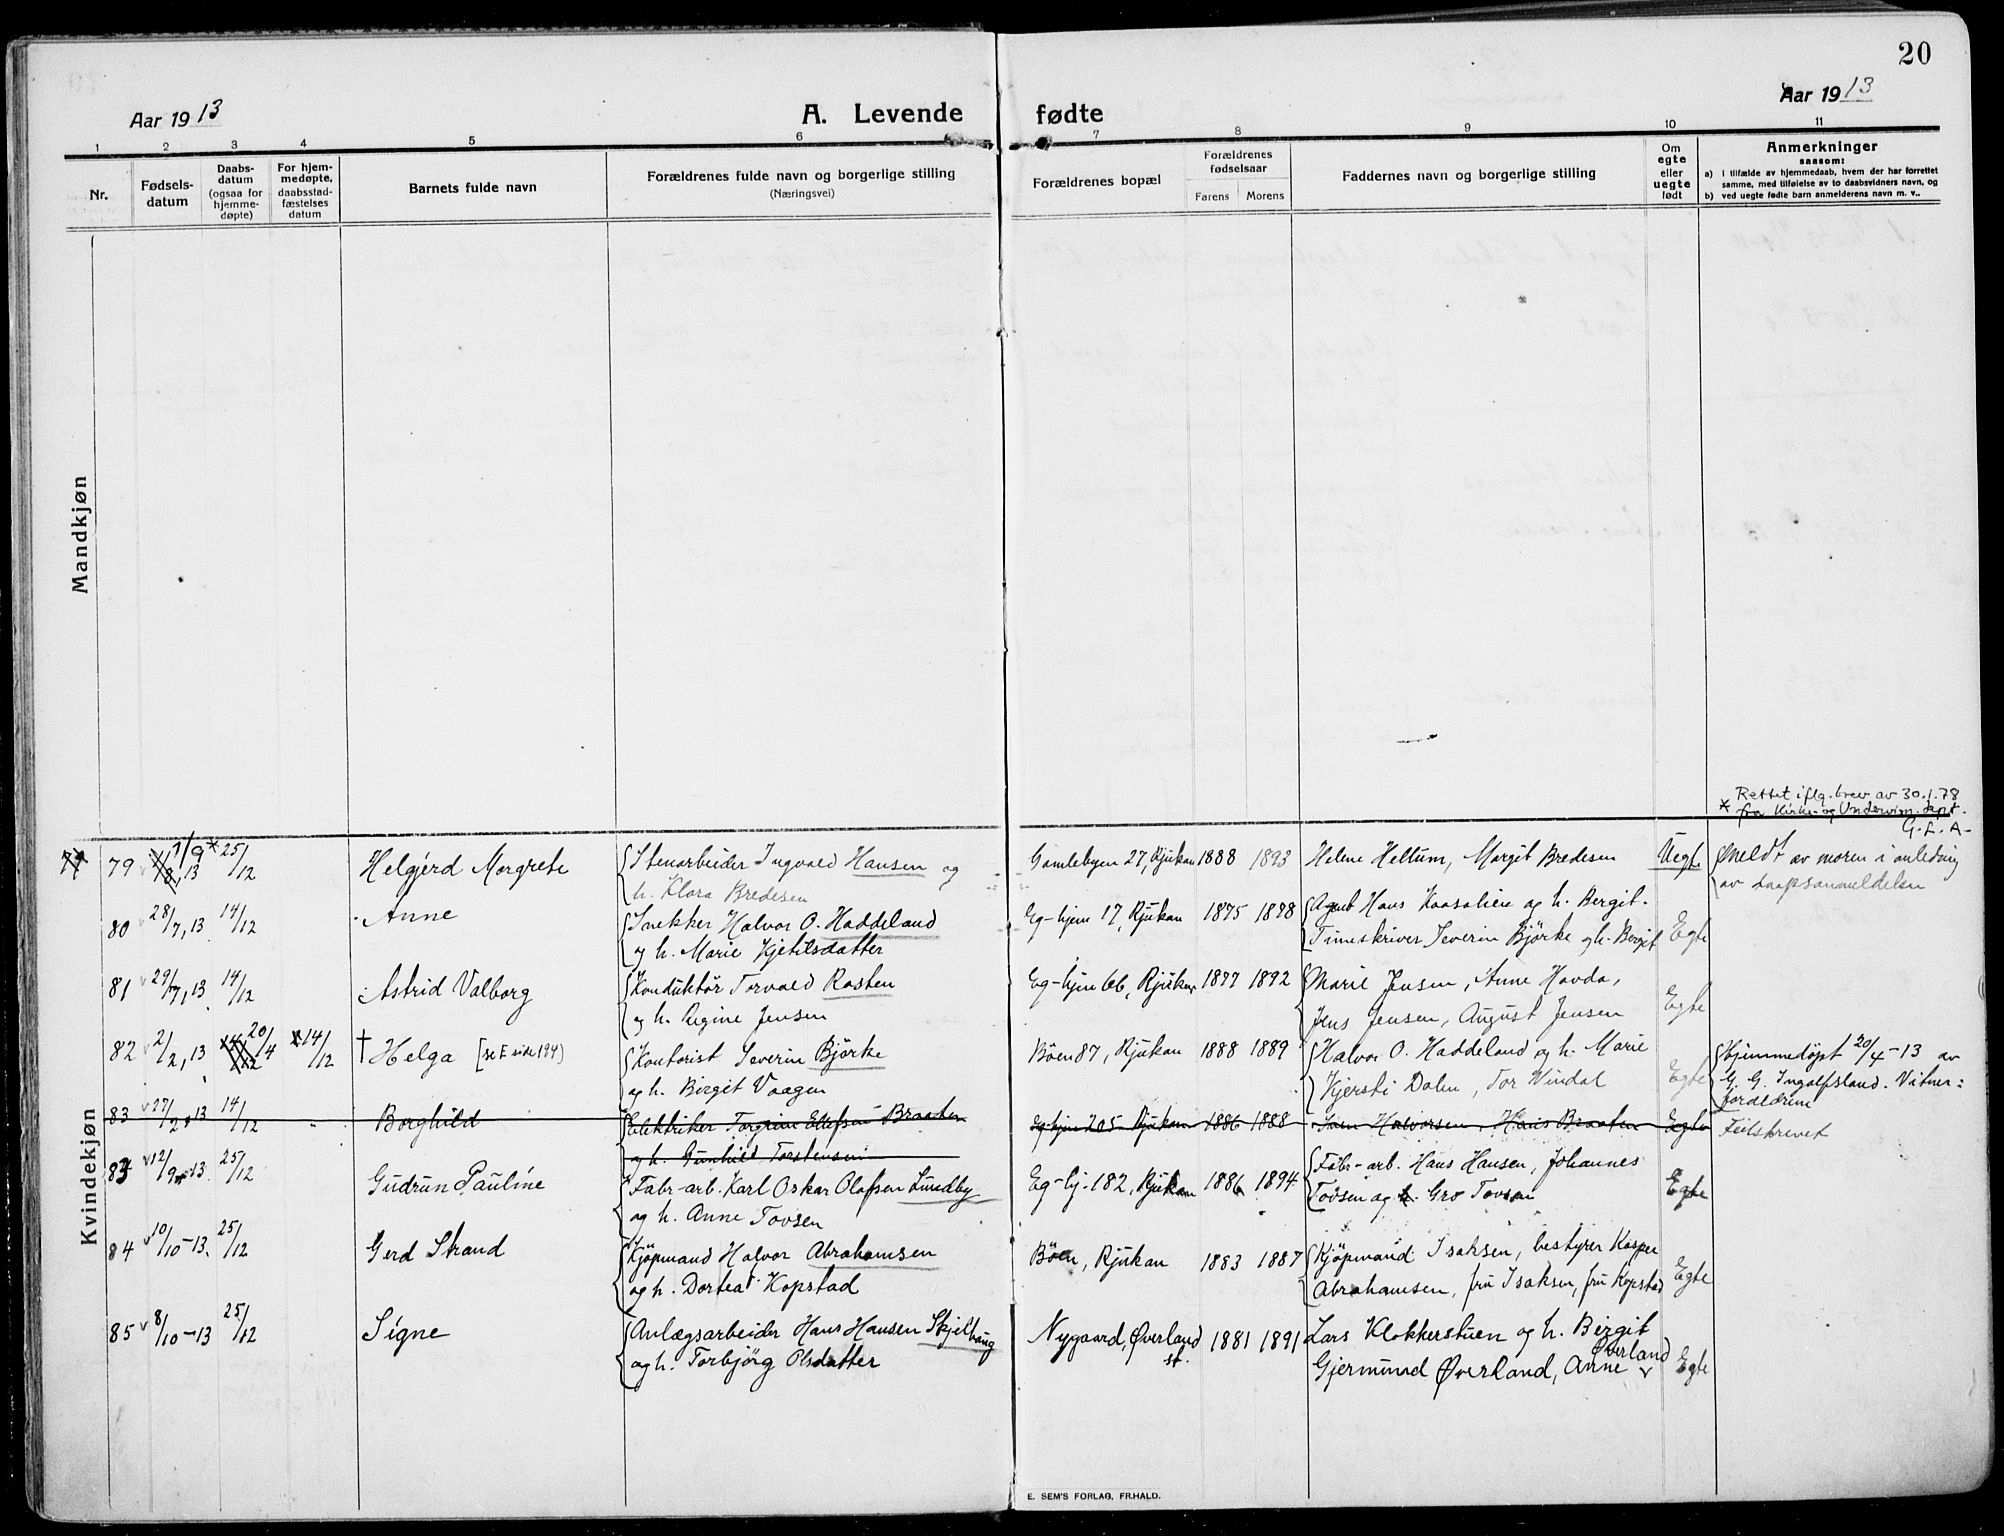 20
Aar 1913
A. Levende fødte
Aar 1913
1 2 3 4 5 6 7 8 9 10 11
Nr.
Fødsels-
datum
Daabs-
datum
(ogsaa for
hjemme-
døpte)
For hjem-
medøpte,
daabsstad-
fæstelses
datum
Barnets fulde navn
Forældrenes fulde navn og borgerlige stilling
(Næringsvei)
Forældrenes bopæl
Forældrenes
fødselsaar
Farens Morens
Faddernes navn og borgerlige stilling
Om
egte
eller
uegte
født
Anmerkninger
saasom:
a) i tilfælde av hjemmedaab, hvem der har forrettet
samme, med tilføielse av to daabsvidners navn, og
b) ved uegte fødte barn anmelderens navn m. v..
Mandkjøn
Rettet iflg. brev av 30.1.78
* fra Kirke- og Undervisn. dept.
G.L.A-
Kvindekjøn
79 1/9* 13 25/12 Helgjerd Margrete {Stenarbeider Ingvald Hansen og Gamlebyen 27, Rjukan 1888 1893 Helene Hellum, Margit Bredesen Uegte {Meldt av moren i anledning
h. Klara Bredesen av daapsanmeldelsen
80 28/7, 13 14/12 Anne {Snekker Halvor O. Haddeland Eg-hjem 17, Rjukan 1875 1878 {Agent Hans Kaasalien og h. Bergit. Egte
og h. Marie Kjetilsdatter Timeskriver Severin Björke og h. Bergit
81 29/7, 13 14/12 Astrid Valborg {Konduktör Torvald Rasten Eg-hjem 66, Rjukan 1877 1892 {Marie Jensen, Anne Hovda, Egte
og h. Regine Jensen Jens Jensen, August Jensen
82 2/2, 13 20/4 *14/12 † Helga [se E side 194) {Kontorist Severin Björke Böen 87, Rjukan 1888 1889 {Halvor O. Haddeland og h. Marie Egte {Hjemmedöpt 20/4-13 av
og h. Birgit Vaagen Kjersti Dalen, Tor Vindal G. G. Ingolfsland. Vitner:
foreldrene
83 27/2, 13 14/12 Borghild {Elektriker Torgrim Ellefsen Braaten Eg-hjem 205 Rjukan 1886 1888 Halvorsen, Hans Braaten Egte Feilskrevet
og h. Gunhild Torstensen
83 12/9-13 25/12 Gudrun Pauline {Fabr-arb. Karl Oskar Olafsen Lundby Eg-hj. 182, Rjukan 1886 1894 {Fabr-arb. Hans Hansen, Johannes Egte
og h. Anne Tovsen Tovsen og h. Gro Tovsen
84 10/10-13. 25/12 Gerd Strand {Kjöpmand Halvor Abrahamsen Böen, Rjukan 1883 1887 {Kjöpmand Isaksen, bestyrer Kasper Egte
og h. Dortea Kopstad Abrahamsen, fru Isaksen, fru Kopstad
85 8/10-13 25/12 Signe {Anlægsarbeider Hans Hansen Skjelhaug Nygaard, Øverland st. 1881 1891 Lars Klokkerstuen og h. Birgit Egte
og h. Torbjörg Olsdatter Gjermund Øverland, Anne Øverland
E. SEM'S FORLAG, FR.HALD.